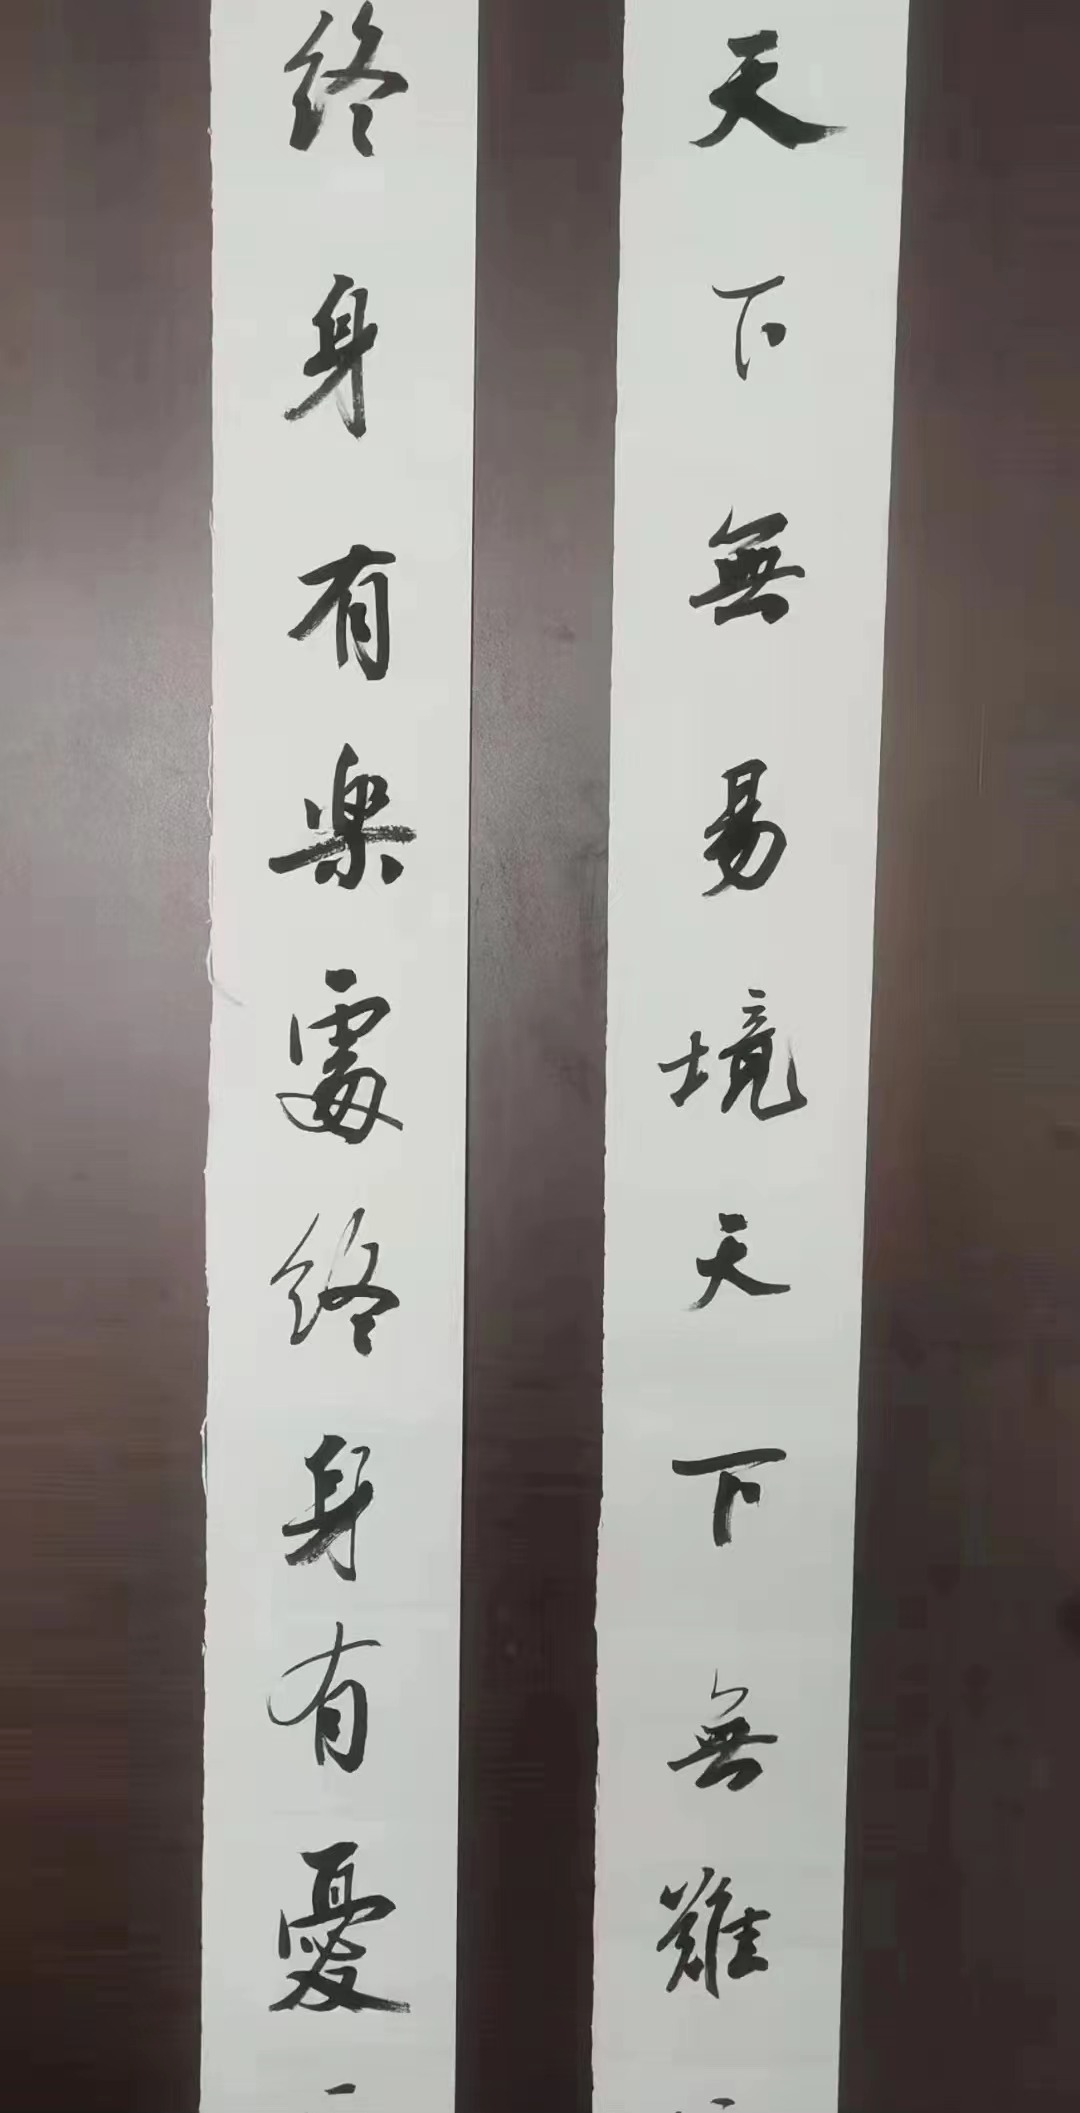 天下無易境天下無難
終身有楽處終身有憂